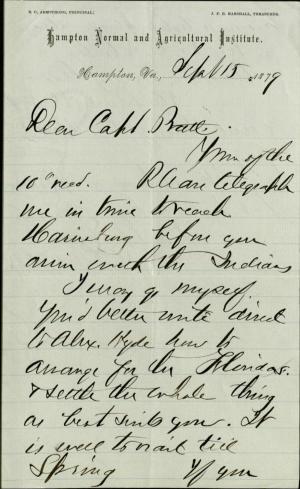 S. C. ARMSTRONG, PRINCIPAL. J. F. B. MARSHALL, TREASURER.
Hampton Normal and Agricultural Institute.
Hampton, Va., Sept 15 1879
Dear Capt Pratt.
Yours of the
10th recd. Please telegraph
me in time to reach
Harrisburg before you
arrive with the Indians
I may go myself.
You'd better write direct
to Alex. Hyde how to
arrange for the Floridas.
& settle the whole thing
as best suits you. It
is well to wait till
Spring If you